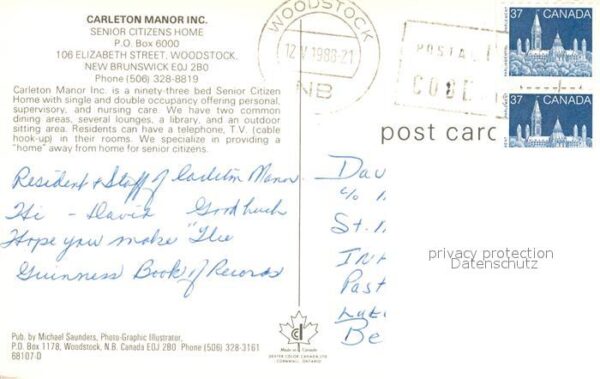 CARLETON MANOR INC.
SENIOR CITIZENS HOME
P.O. Box 6000
106 ELIZABETH STREET, WOODSTOCK,
NEW BRUNSWICK E0J 2B0
Phone (506) 328-8819
Carleton Manor Inc. is a ninety-three bed Senior Citizen
Home with single and double occupancy offering personal,
supervisory, and nursing care. We have two common
dining areas, several lounges, a library, and an outdoor
sitting area. Residents can have a telephone, T.V. (cable
hook-up) in their rooms. We specialize in providing a
"home" away from home for senior citizens.
Resident & Staff of Carleton Manor
Hi - David Good luck
Hope you make "The
Guinness Book of Records
Pub. by Michael Saunders, Photo-Graphic Illustrator,
P.O. Box 1178, Woodstock, N.B. Canada E0J 2B0 Phone (506) 328-3161
68107-D
WOODSTOCK
12 V 1988-21
NB
POSTAL
CODE
37 CANADA
37 CANADA
post card
Dav
c/o
St.
Past
Be
privacy protection
Datenschutz
Made in Canada
DEXTER COLOR CANADA LTD.
CORNWALL, ONTARIO